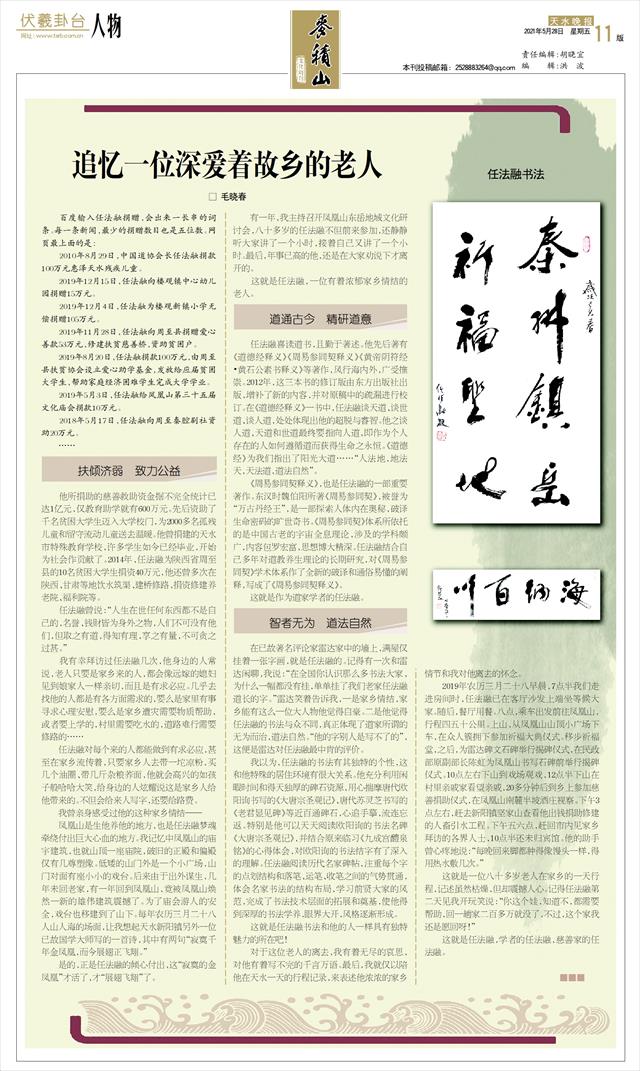 伏羲卦台
人物
网址:www.tswb.com.cn
麦積山
本刊投稿邮箱:2528883264@qq.com
天水晚报
2021年5月28日 星期五
11版
责任编辑:胡晓宜
编 辑:洪 波
追忆一位深爱着故乡的老人
□ 毛晓春
百度输入任法融捐赠,会出来一长串的词
条。每一条新闻,最少的捐赠数目也是五位数。网
页最上面的是:
2010年8月29日,中国道协会长任法融捐款
100万元惠泽天水残疾儿童。
2019年12月15日,任法融向楼观镇中心幼儿
园捐赠15万元。
2019年12月4日,任法融为楼观新镇小学无
偿捐赠105万元。
2019年11月28日,任法融向周至县捐赠爱心
善款53万元,修建扶贫慈善桥,资助贫困户。
2019年8月20日,任法融捐款100万元,由周至
县扶贫协会设立爱心助学基金,发放给应届贫困
大学生,帮助家庭经济困难学生完成大学学业。
2019年5月3日,任法融给凤凰山第三十五届
文化庙会捐款10万元。
2018年5月17日,任法融向周至秦腔剧社资
助20万元。
……
扶倾济弱 致力公益
他所捐助的慈善救助资金据不完全统计已
达1亿元,仅教育助学就有600万元,先后资助了
千名贫困大学生迈入大学校门,为2000多名孤残
儿童和留守流动儿童送去温暖。他曾捐建的天水
市特殊教育学校,许多学生如今已经毕业,开始
为社会作贡献了。2014年,任法融为陕西省周至
县的10名贫困大学生捐资40万元,他还曾多次在
陕西,甘肃等地饮水筑渠,建桥修路,捐资修建养
老院,福利院等。
任法融曾说:“人生在世任何东西都不是自
己的,名誉,钱财皆为身外之物,人们不可没有他
们,但取之有道,得知有理,享之有量,不可贪之
过甚。”
我有幸拜访过任法融几次,他身边的人常
说,老人只要是家乡来的人,都会像远嫁的媳妇
见到娘家人一样亲切,而且是有求必应。几乎去
找他的人都是有各方面需求的,要么是家里有事
寻求心理安慰,要么是家乡遭灾需要物质帮助,
或者要上学的,村里需要吃水的,道路难行需要
修路的……
任法融对每个来的人都能做到有求必应,甚
至在家乡流传着,只要家乡人去带一坨凉粉,买
几个油圈,带几斤杂粮养面,他就会高兴的如孩
子般哈哈大笑,给身边的人炫耀说这是家乡人给
他带来的。不但会给来人写字,还要给路费。
我曾亲身感受过他的这种家乡情结——
凤凰山是生他养他的地方,也是任法融梦魂
牵绕付出巨大心血的地方。我记忆中凤凰山的庙
宇建筑,也就山顶一座庙院,破旧的正殿和偏殿
仅有几尊塑像。低矮的山门外是一个小广场,山
门对面有座小小的戏台。后来由于出外谋生,几
年未回老家,有一年回到凤凰山,竟被凤凰山焕
然一新的雄伟建筑震撼了。为了庙会游人的安
全,戏台也移建到了山下。每年农历三月二十八
人山人海的场面,让我想起天水新阳镇另外一位
已故国学大师写的一首诗,其中有两句“寂寞千
年金凤凰,而今展翅正飞翔。”
是的,正是任法融的倾心付出,这“寂寞的金
凤凰”才活了,才“展翅飞翔”了。
有一年,我主持召开凤凰山东岳地域文化研
讨会,八十多岁的任法融不但前来参加,还静静
听大家讲了一个小时,接着自己又讲了一个小
时。最后,年事已高的他,还是在大家劝说下才离
开的。
这就是任法融,一位有着浓郁家乡情结的
老人。
道通古今 精研道意
任法融喜读道书,且勤于著述。他先后著有
《道德经释义》《周易参同契释义》《黄帝阴符经
·黄石公素书释义》等著作,风行海内外,广受推
崇。2012年,这三本书的修订版由东方出版社出
版,增补了新的内容,并对原稿中的疏漏进行校
订。在《道德经释义》一书中,任法融谈天道,谈世
道,谈人道,处处体现出他的超脱与睿智。他之谈
人道,天道和世道最终要指向人道,即作为个人
存在的人如何遵循道而获得生命之永恒。《道德
经》为我们指出了阳光大道……“人法地,地法
天,天法道,道法自然”。
《周易参同契释义》,也是任法融的一部重要
著作。东汉时魏伯阳所著《周易参同契》,被誉为
“万古丹经王”,是一部探索人体内在奥秘,破译
生命密码的旷世奇书。《周易参同契》体系所依托
的是中国古老的宇宙全息理论,涉及的学科颇
广,内容包罗宏富,思想博大精深。任法融结合自
己多年对道教养生理论的长期研究,对《周易参
同契》学术体系作了全新的破译和通俗易懂的阐
释,写成了《周易参同契释义》。
这就是作为道家学者的任法融。
智者无为 道法自然
在已故著名评论家雷达家中的墙上,满屋仅
挂着一张字画,就是任法融的。记得有一次和雷
达闲聊,我说:“在全国你认识那么多书法大家,
为什么一幅都没有挂,单单挂了我们老家任法融
道长的字。”雷达笑着告诉我,一是家乡情结,家
乡能有这么一位大人物他觉得自豪。二是他觉得
任法融的书法与众不同,真正体现了道家所谓的
无为而治,道法自然。“他的字别人是写不了的”。
这便是雷达对任法融最中肯的评价。
我以为,任法融的书法有其独特的个性,这
和他特殊的居住环境有很大关系。他充分利用闲
暇时间和得天独厚的碑石资源,用心揣摩唐代欧
阳询书写的《大唐宗圣观记》,唐代苏灵芝书写的
《老君显见碑》等近百通碑石,心追手摹,流连忘
返。特别是他可以天天阅读欧阳询的书法名碑
《大唐宗圣观记》,并结合原来临习《九成宫醴泉
铭》的心得体会,对欧阳询的书法结字有了深入
的理解。任法融阅读历代名家碑帖,注重每个字
的点划结构和落笔,运笔,收笔之间的气势贯通,
体会名家书法的结构布局,学习前贤大家的风
范,完成了书法技术层面的拓展和奠基,使他得
到深厚的书法学养,眼界大开,风格逐渐形成。
这就是任法融书法和他的人一样具有独特
魅力的所在吧!
对于这位老人的离去,我有着无尽的哀思,
对他有着写不完的千言万语。最后,我就仅以陪
他在天水一天的行程记录,来表述他浓浓的家乡
任法融书法
秦州鎮岳
祈福聖地
海納百川
情节和我对他离去的怀念。
2019年农历三月二十八早晨,7点半我们走
进房间时,任法融已在客厅沙发上端坐等候大
家。随后,餐厅用餐。八点,乘车出发前往凤凰山,
行程四五十公里。上山,从凤凰山山顶小广场下
车,在众人簇拥下参加祈福大典仪式,移步祈福
堂,之后,为雷达碑文石碑举行揭碑仪式,在民政
部原副部长陈虹为凤凰山书写石碑前举行揭碑
仪式。10点左右下山到戏场观戏。12点半下山在
村里亲戚家看望亲戚。20多分钟后到乡上参加慈
善捐助仪式,在凤凰山南麓半坡酒庄视察。下午3
点左右,赶去新阳镇坚家山查看他出钱捐助修建
的人畜引水工程。下午五六点,赶回市内见家乡
拜访的各界人士,10点半还未归宾馆。他的助手
曾心疼地说:“每晚回来脚都肿得像馒头一样,得
用热水敷几次。”
这就是一位八十多岁老人在家乡的一天行
程,记述虽然枯燥,但却震撼人心。记得任法融第
二天见我开玩笑说:“你这个娃,知道不,都需要
帮助,回一趟家二百多万就没了,不过,这个家我
还是愿回呀!”
这就是任法融,学者的任法融,慈善家的任
法融。